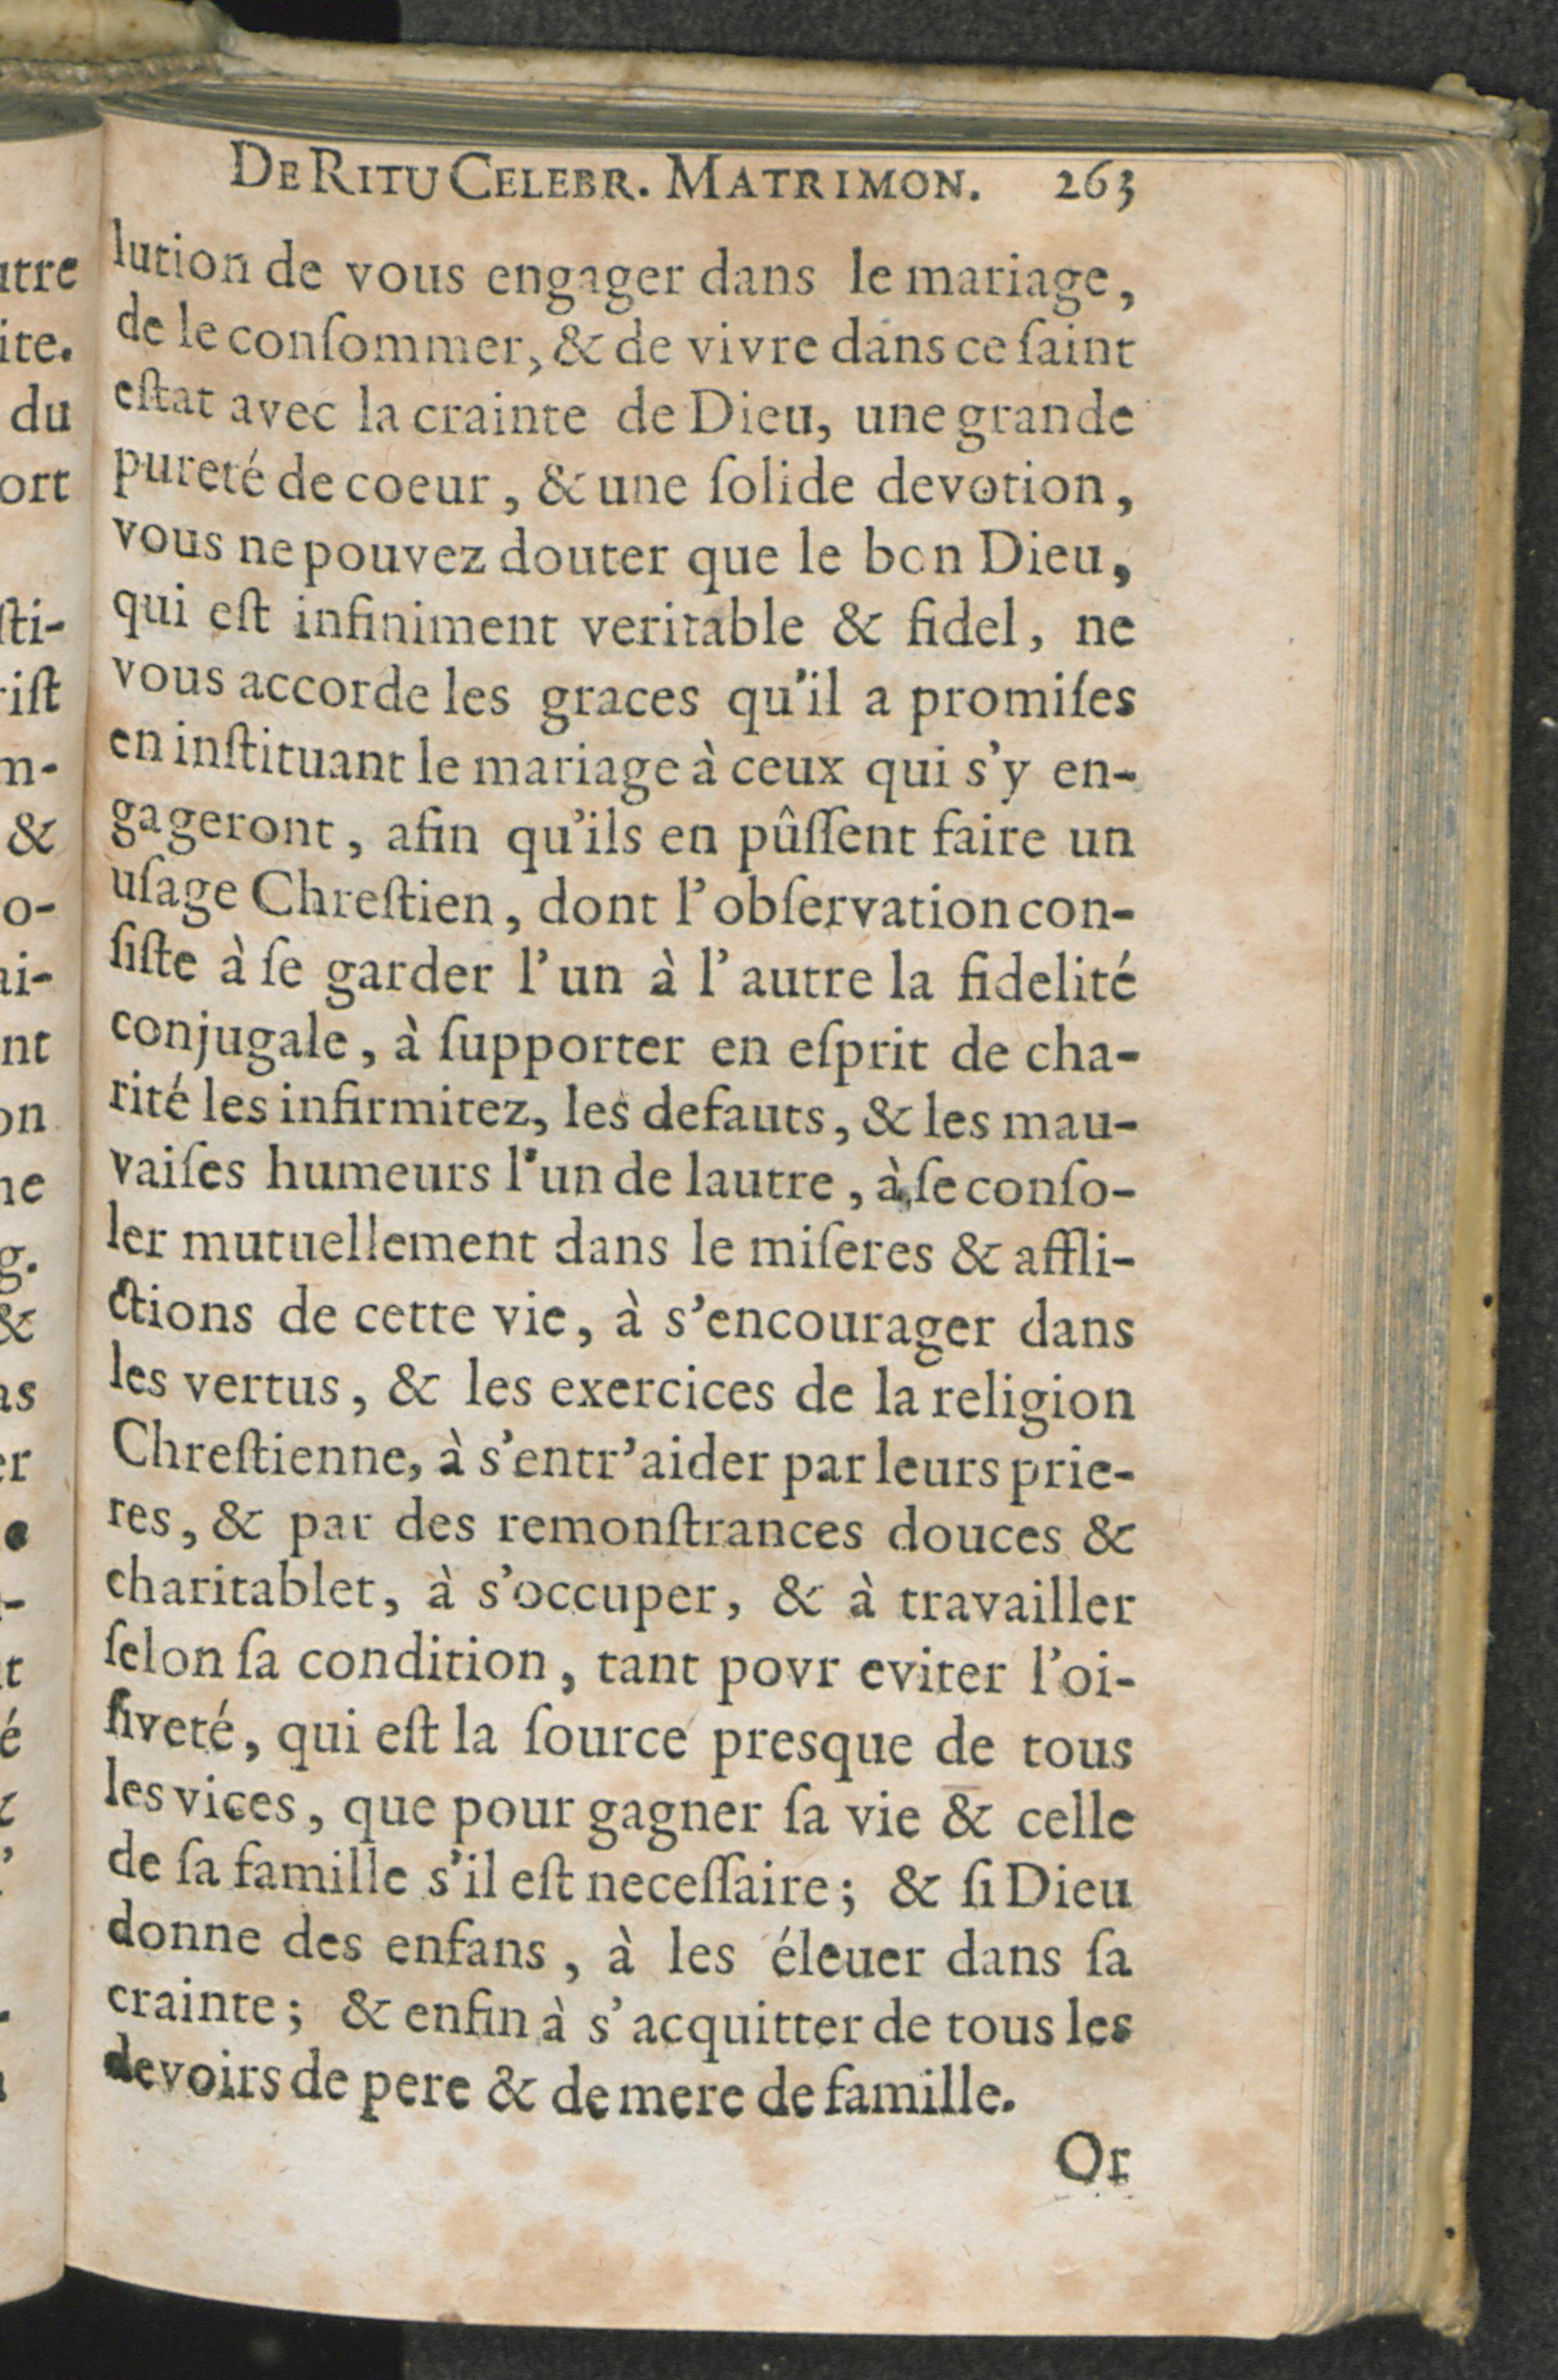 DE RITU CELEBR. MATRIMON. 263
lution de vous engager dans le mariage,
de le conſommer, & de vivre dans ce ſaint
eſtat avec la crainte de Dieu, une grande
pureté de coeur, & une ſolide devotion,
vous ne pouvez douter que le bon Dieu,
qui eſt infiniment veritable & fidel, ne
vous accorde les graces qu'il a promiſes
en inſtituant le mariage à ceux qui s'y en-
gageront, afin qu'ils en pûſſent faire un
uſage Chreſtien, dont l'obſervation con-
ſiſte à ſe garder l'un à l'autre la fidelité
conjugale, à ſupporter en eſprit de cha-
rité les infirmitez, les defauts, & les mau-
vaiſes humeurs l'un de lautre, à ſe conſo-
ler mutuellement dans le miſeres & affli-
ctions de cette vie, à s'encourager dans
les vertus, & les exercices de la religion
Chreſtienne, à s'entr'aider par leurs prie-
res, & par des remonſtrances douces &
charitablet, à s'occuper, & à travailler
ſelon ſa condition, tant povr eviter l'oi-
ſiveté, qui eſt la ſource presque de tous
les vices, que pour gagner ſa vie & celle
de ſa famille s'il eſt neceſſaire; & ſi Dieu
donne des enfans, à les éleuer dans ſa
crainte; & enfin à s'acquitter de tous les
devoirs de pere & de mere de famille.
Or